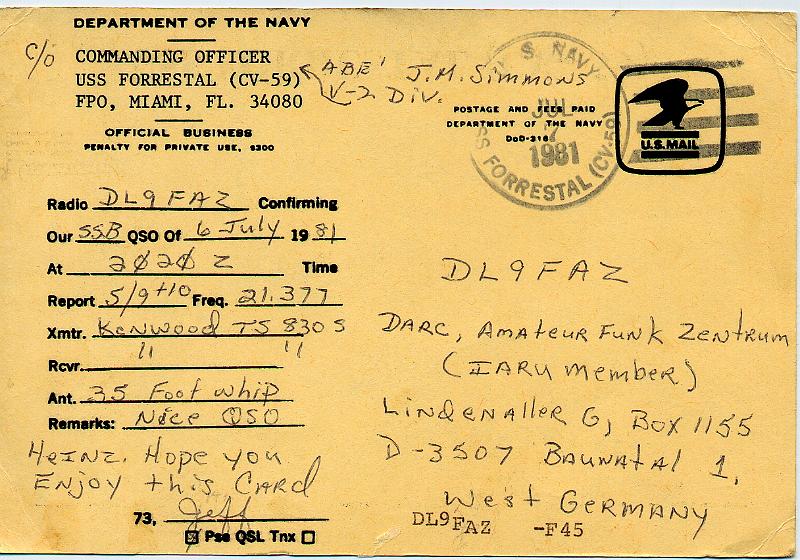 DEPARTMENT OF THE NAVY
c/o COMMANDING OFFICER
USS FORRESTAL (CV-59)
FPO, MIAMI, FL. 34080
ABE' J.M. Simmons
V-2 Div.
OFFICIAL BUSINESS
PENALTY FOR PRIVATE USE, $300
U.S. NAVY
JUL
7
1981
USS FORRESTAL (CV-59)
POSTAGE AND FEES PAID
DEPARTMENT OF THE NAVY
DoD-316
U.S.MAIL
Radio DL9FAZ Confirming
Our SSB QSO Of 6 July 1981
At 2020 Z Time
Report 5/9+10 Freq. 21.377
Xmtr. Kenwood TS 830 S
Rcvr. " "
Ant. 35 Foot whip
Remarks: Nice QSO
Heinz. Hope you
Enjoy this Card
73, Jeff
☒ Pse QSL Tnx ☐
DL9FAZ
DARC, Amateur Funk Zentrum
(IARU member)
Lindenaller 6, Box 1155
D-3507 Baunatal 1,
West Germany
DL9FAZ -F45